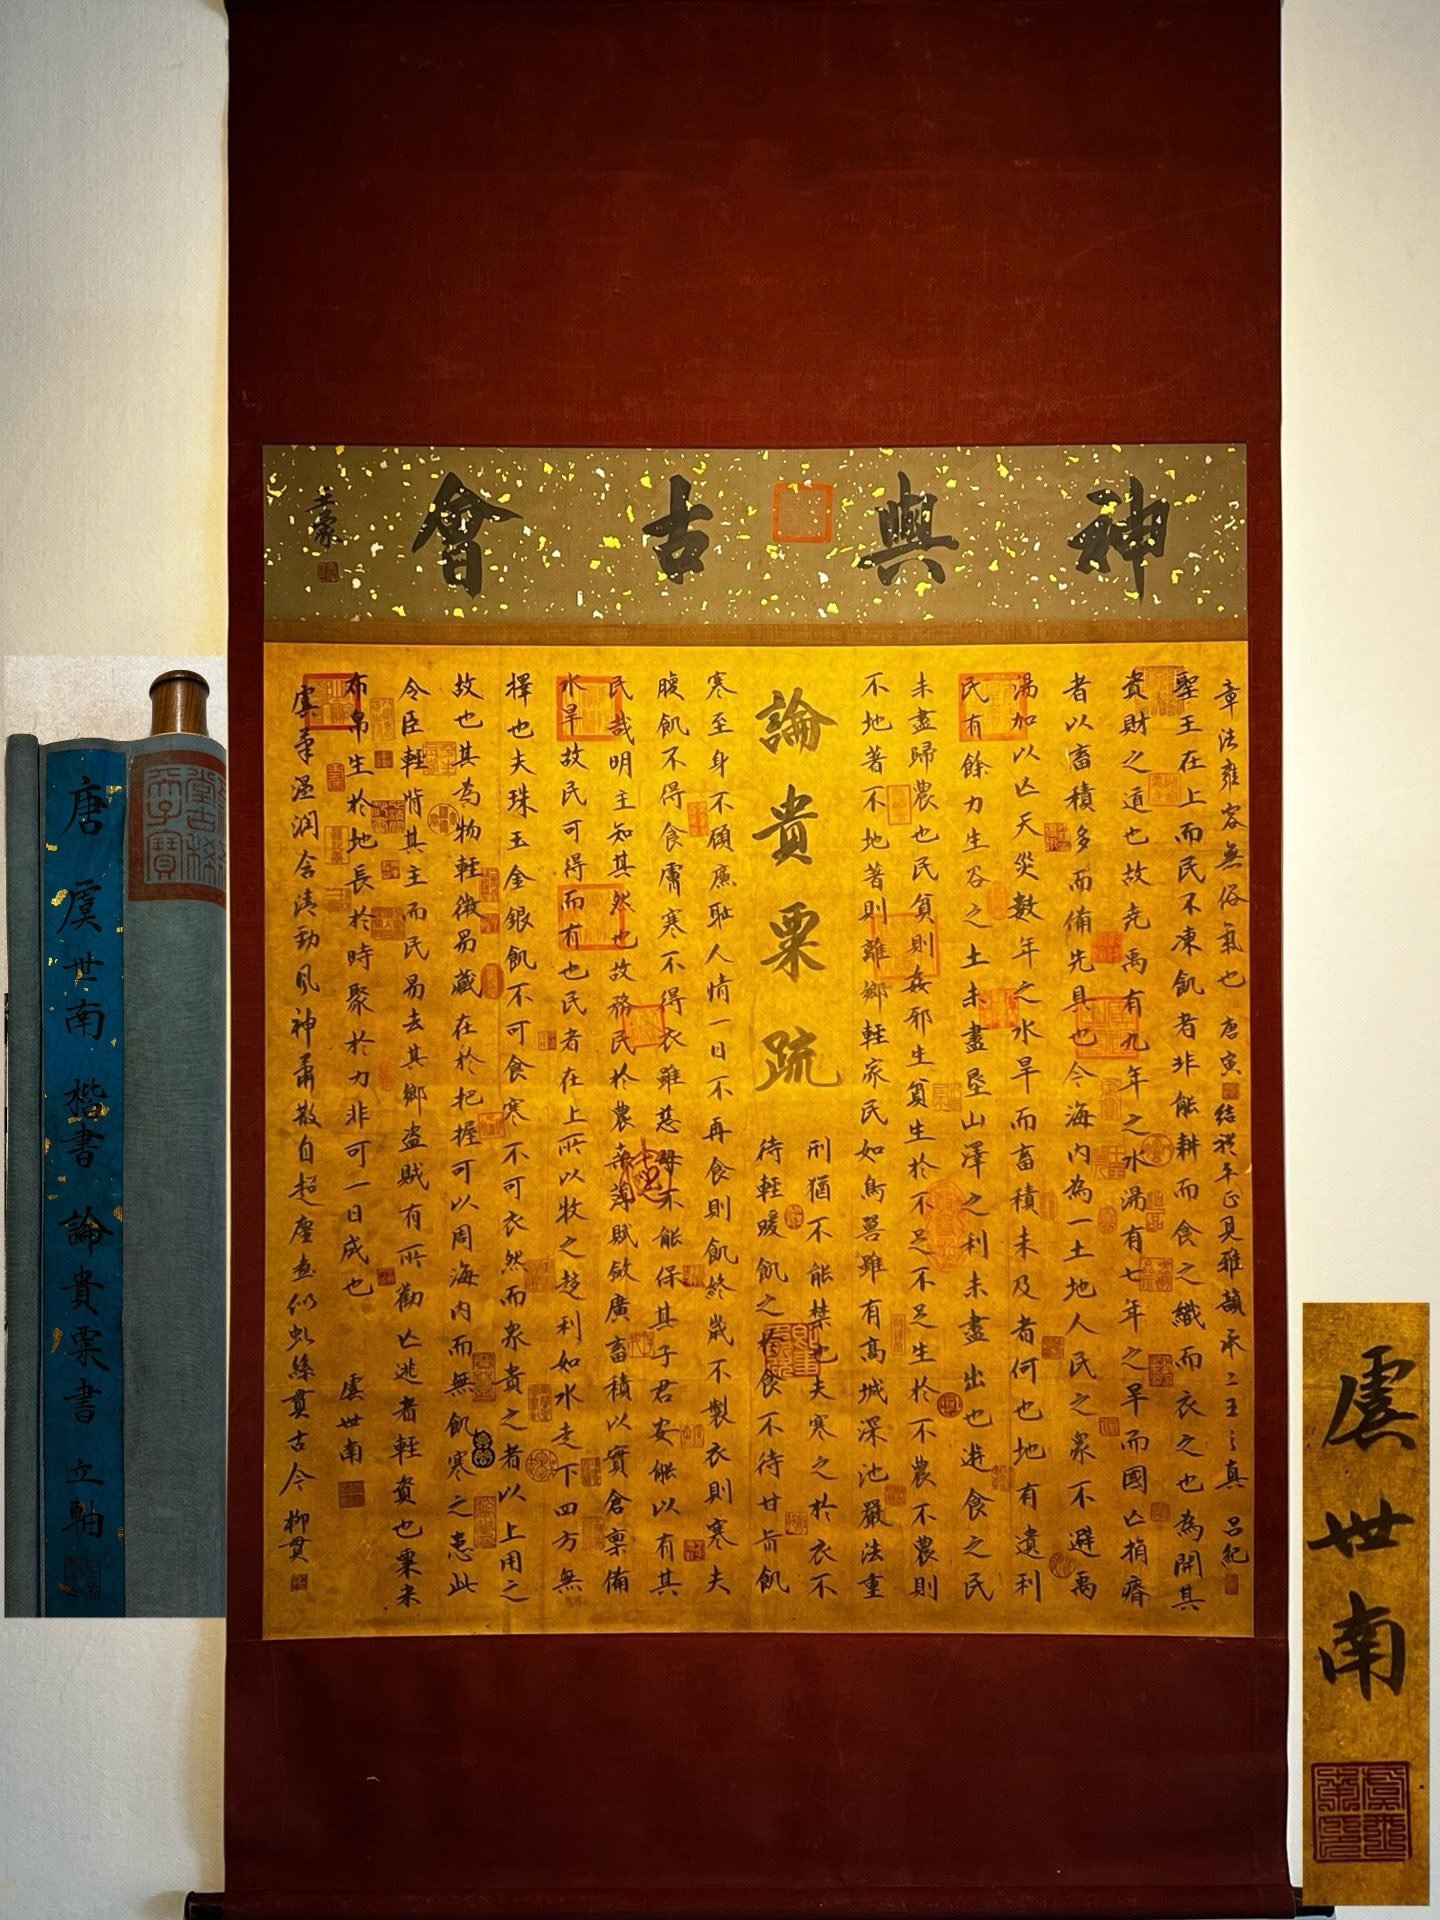 神與古會
王蒙
章法雍容無俗氣也 唐寅
結體平正見雅韻承二王之真 呂紀
聖王在上而民不凍飢者非能耕而食之織而衣之也為開其
資財之道也故堯禹有九年之水湯有七年之旱而國亡捐瘠
者以畜積多而備先具也今海內為一土地人民之衆不避禹
湯加以亡天災數年之水旱而畜積未及者何也地有遺利
民有餘力生谷之土未盡墾山澤之利未盡出也遊食之民
未盡歸農也民貧則姦邪生貧生於不足不足生於不農不農則
不地著不地著則離鄉輕家民如鳥獸雖有高城深池嚴法重
刑猶不能禁也夫寒之於衣不
待輕暖飢之於食不待甘旨飢
論貴粟疏
寒至身不顧廉恥人情一日不再食則飢終歲不製衣則寒夫
腹飢不得食膚寒不得衣雖慈母不能保其子君安能以有其
民哉明主知其然也故務民於農桑薄賦斂廣畜積以實倉廩備
水旱故民可得而有也民者在上所以牧之趨利如水走下四方無
擇也夫珠玉金銀飢不可食寒不可衣然而衆貴之者以上用之
故也其為物輕微易藏在於把握可以周海內而無飢寒之患此
令臣輕背其主而民易去其鄉盜賊有所勸亡逃者輕資也粟米
布帛生於地長於時聚於力非可一日成也 虞世南
虞筆溫潤含清勁風神蕭散自超塵畫似虹絲貫古今 柳貫
唐 虞世南 楷書 論貴粟書 立軸
虞世南